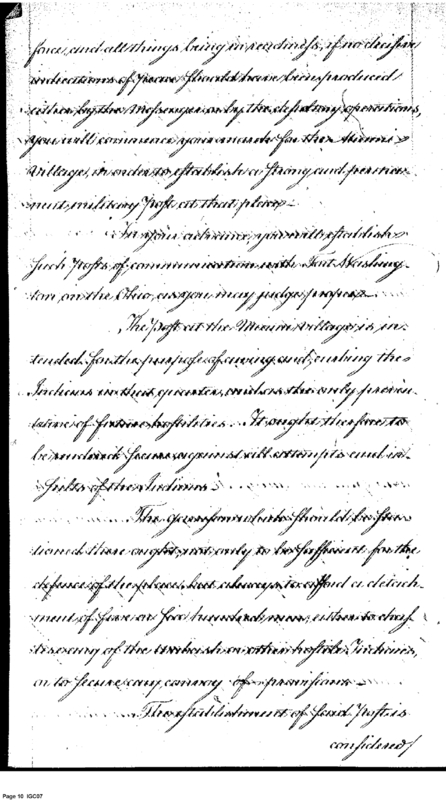 force, and all things being in readiness, if no decisive
indications of peace should have been produced
either by the messenger or by the desultory operations,
you will commence your march for the Miami
Village, in order to establish a strong and perma-
nent military Post at that place—
In your advance, you will establish
such Posts of communication with Fort Washing-
ton, on the Ohio, as you may judge proper—
The Post at the Miami Village is in-
tended for the purpose of awing and curbing the
Indians in that quarter, and as the only preven-
tative of future hostilities. It ought therefore to
be rendered secure against all attempts and in-
sults of the Indians.
The garrison which should be sta-
tioned there ought not only to be sufficient for the
defence of the place, but always to afford a detach-
ment of five or six hundred men, either to chas-
tise any of the Wabash or other hostile Indians,
or to secure any convoy of provisions—
The establishment of said Post is
considered
Page 10 IGC07